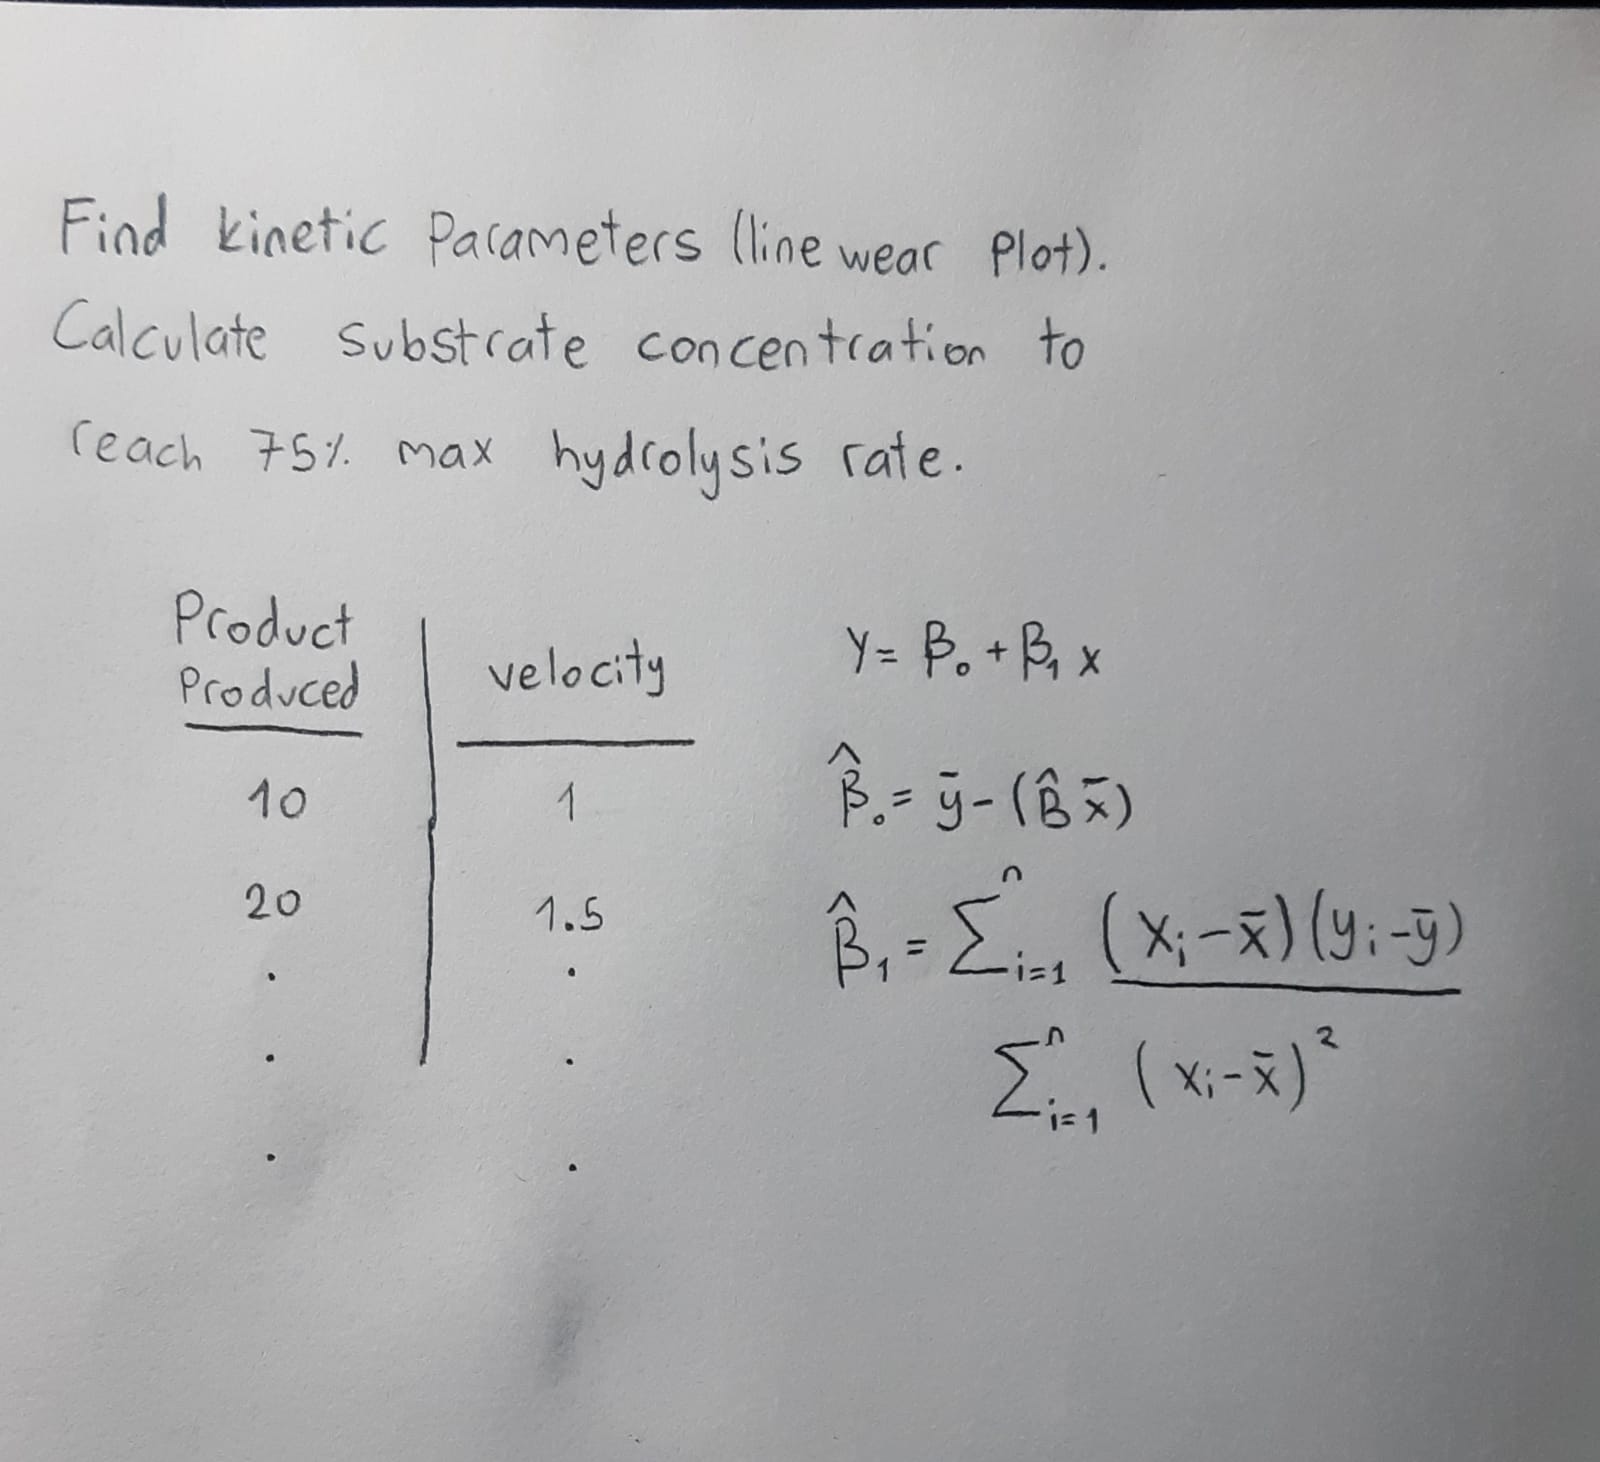 Find kinetic Parameters (line wear Plot).
Calculate substrate concentration to
reach 75% max hydrolysis rate.
Product
Produced
velocity
10 1
20 1.5
. .
. .
. .
Y = β₀ + β₁ x
β̂₀ = ȳ - (β̂ x̄)
β̂₁ = Σⁿᵢ₌₁ (xᵢ - x̄)(yᵢ - ȳ)
Σⁿᵢ₌₁ (xᵢ - x̄)²